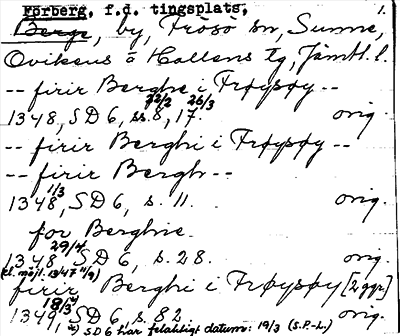 Förberg, f.d. tingsplats, 1.
Berge, by, Frösö sn, Sunne,
Ovikens o Hallens tg, Jämtl. l.
-- firir Berghe i Frøysøy --
1348 22/2 26/3, SD 6, ss. 8, 17. orig.
-- firir Berghi i Frøysøy --
-- firir Bergh --
1348 1/3, SD 6, s. 11. orig.
for Berghie.
1348 29/4, SD 6, s. 28. orig.
(el. möjl. 1347 4/9)
firir Berghi i Frøysøy [2 ggr.]
1349 18/3 *), SD 6, s. 82. orig.
*) SD 6 har felaktigt datum: 19/3 (S.P.-L.)